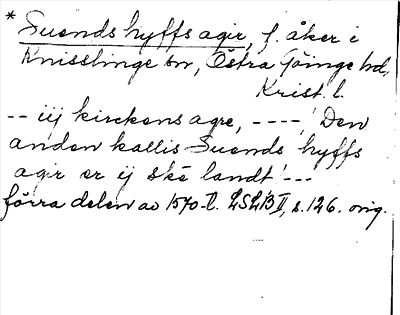 * Suends hyffs agir, f. åker i
Knisslinge sn, Östra Göinge hd,
Krist. l.
-- iij kirckens agre, ----, Den
anden kallis Suends hyffs
agir er ij ske landt ---
förra delen av 1570-t. LSLB II, s. 126. orig.